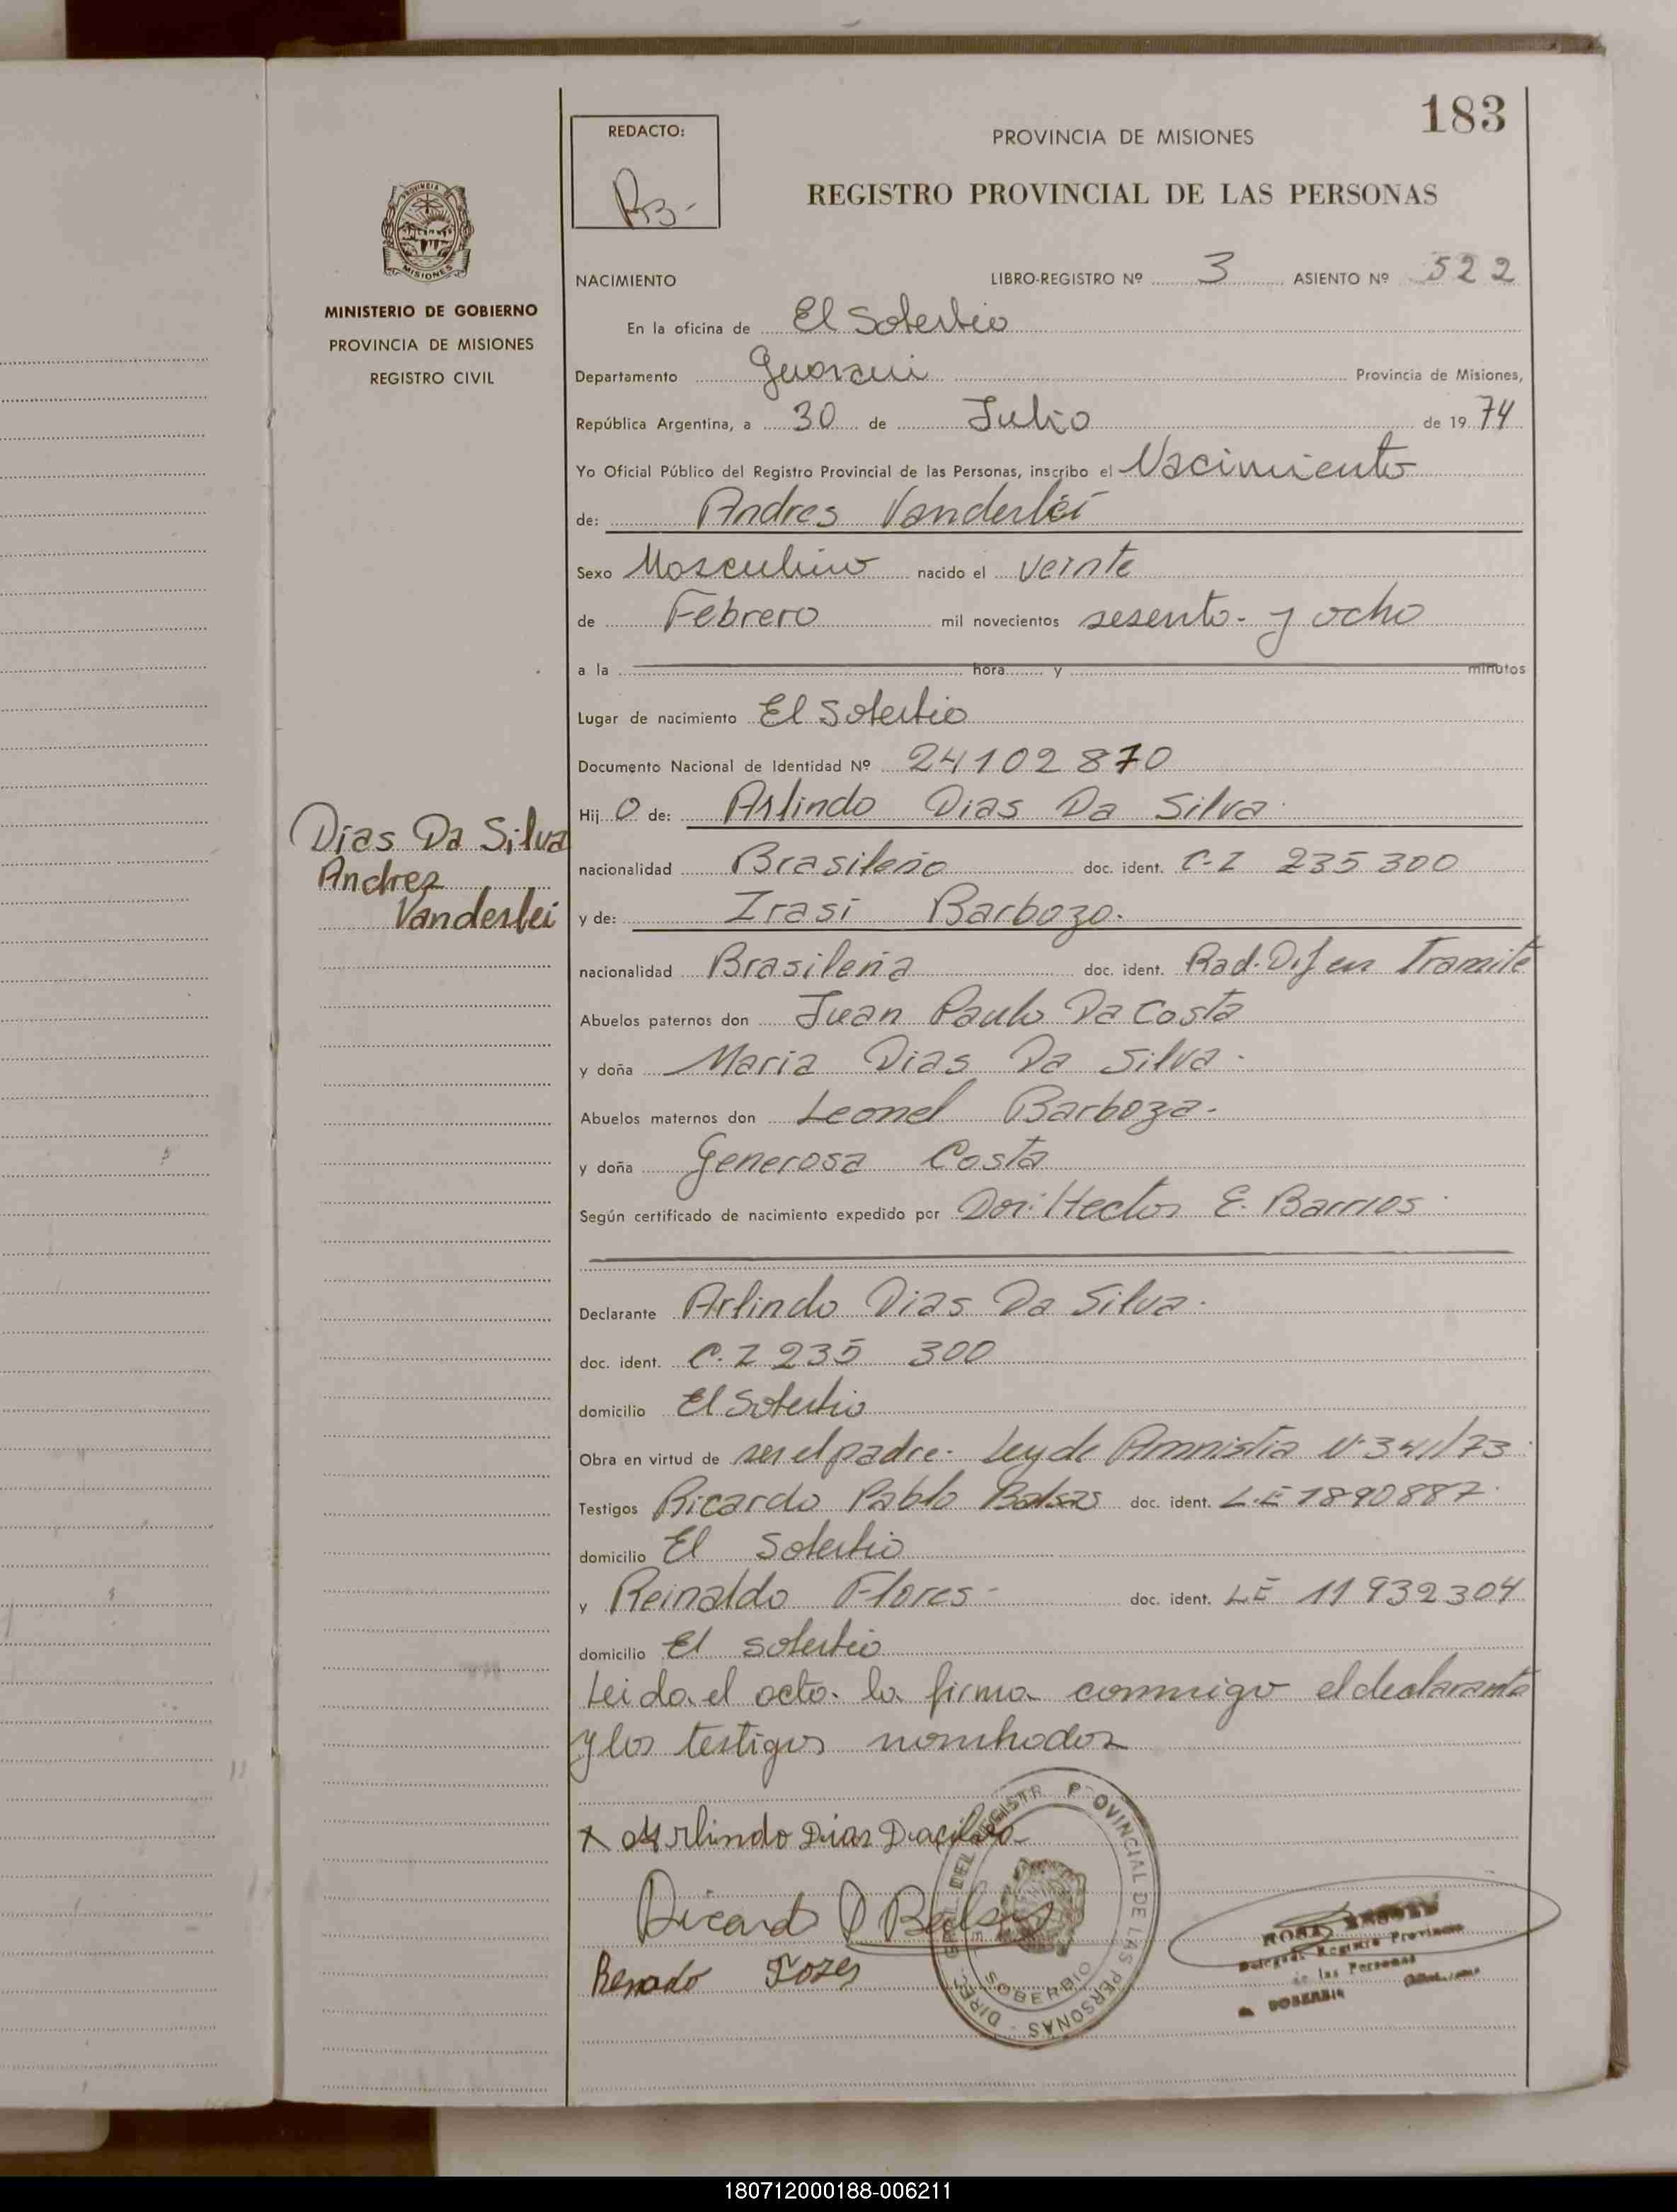 183
REDACTO:
PROVINCIA DE MISIONES
REGISTRO PROVINCIAL DE LAS PERSONAS
PROVINCIA DE
MISIONES
MINISTERIO DE GOBIERNO
PROVINCIA DE MISIONES
REGISTRO CIVIL
NACIMIENTO LIBRO-REGISTRO Nº 3 ASIENTO Nº 522
En la oficina de El Soberbio
Departamento Guarani Provincia de Misiones,
República Argentina, a 30 de Julio de 1974
Yo Oficial Público del Registro Provincial de las Personas, inscribo el Nacimiento
de: Andres Vanderlei
Sexo Masculino nacido el veinte
de Febrero mil novecientos sesenta y ocho
a la hora y minutos
Lugar de nacimiento El Soberbio
Documento Nacional de Identidad Nº 24102870
Hij o de: Arlindo Dias Da Silva
Dias Da Silva
Andres
Vanderlei
nacionalidad Brasileño doc. ident. C-I 235300
y de: Irasi Barbozo.
nacionalidad Brasileña doc. ident. Rad. Def en Tramite
Abuelos paternos don Juan Paulo Da Costa
y doña Maria Dias Da Silva.
Abuelos maternos don Leonel Barboza.
y doña Generosa Costa
Según certificado de nacimiento expedido por Dor: Hector E. Barrios
Declarante Arlindo Dias Da Silva.
doc. ident. C.I 235 300
domicilio El Soberbio
Obra en virtud de ser el padre. Ley de Amnistia Nº 341/73
Testigos Ricardo Pablo Balsas doc. ident. L.E 1890887.
domicilio El Soberbio
y Reinaldo Flores doc. ident. LE 11932304
domicilio El soberbio
Leida el acto. la firma conmigo el declarante
y los testigos nombrados
x Arlindo Dias Dacilva
Ricardo P Balsas
DIREC. GRAL. DEL REGISTR PROVINCIAL DE LAS PERSONAS - EL SOBERBIO
ROSA
Delegada Registro Provincial
de las Personas
SOBERBIO
180712000188-006211